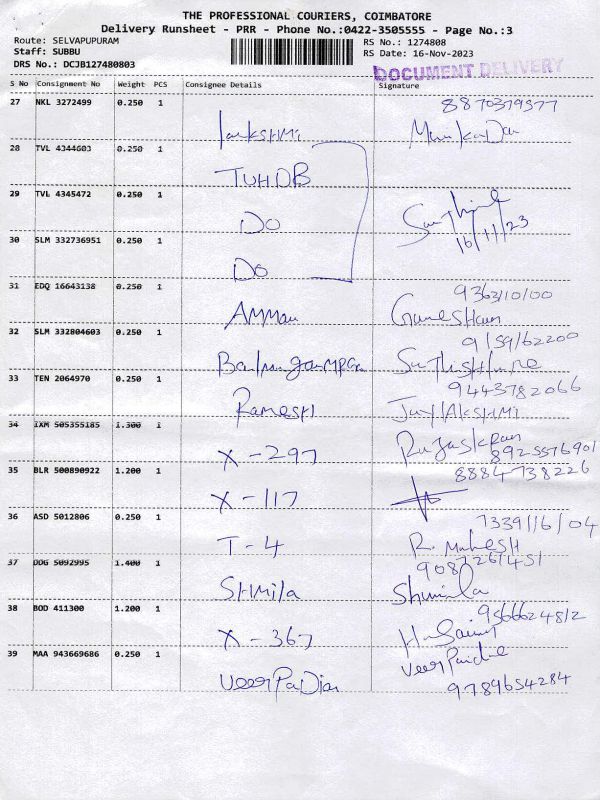 THE PROFESSIONAL COURIERS, COIMBATORE
Delivery Runsheet - PRR - Phone No.:0422-3505555 - Page No.:3
Route: SELVAPUPURAM
Staff: SUBBU
DRS No.: DCJB127480803
RS No.: 1274808
RS Date: 16-Nov-2023
DOCUMENT DELIVERY
S No Consignment No Weight PCS Consignee Details Signature
27 NKL 3272499 0.250 1 8870379377
28 TVL 4344603 0.250 1 TUHDB
29 TVL 4345472 0.250 1 Do 16/11/23
30 SLM 332736951 0.250 1 Do
31 EDQ 16643138 0.250 1 Amman 9363110100 Ganesham
32 SLM 332804603 0.250 1 9159162200
33 TEN 2064970 0.250 1 Ramesh 9443782066
34 IXM 505355185 1.300 1 X-297 8925576901
35 BLR 500890922 1.200 1 X-117 8884738226
36 ASD 5012806 0.250 1 T-4 7339116104 R. Mahesh
37 DDG 5092995 1.400 1 SHMila 9087261451
38 BOD 411300 1.200 1 X-367 9566624812
39 MAA 943669686 0.250 1 VeerPaDian 9789654284